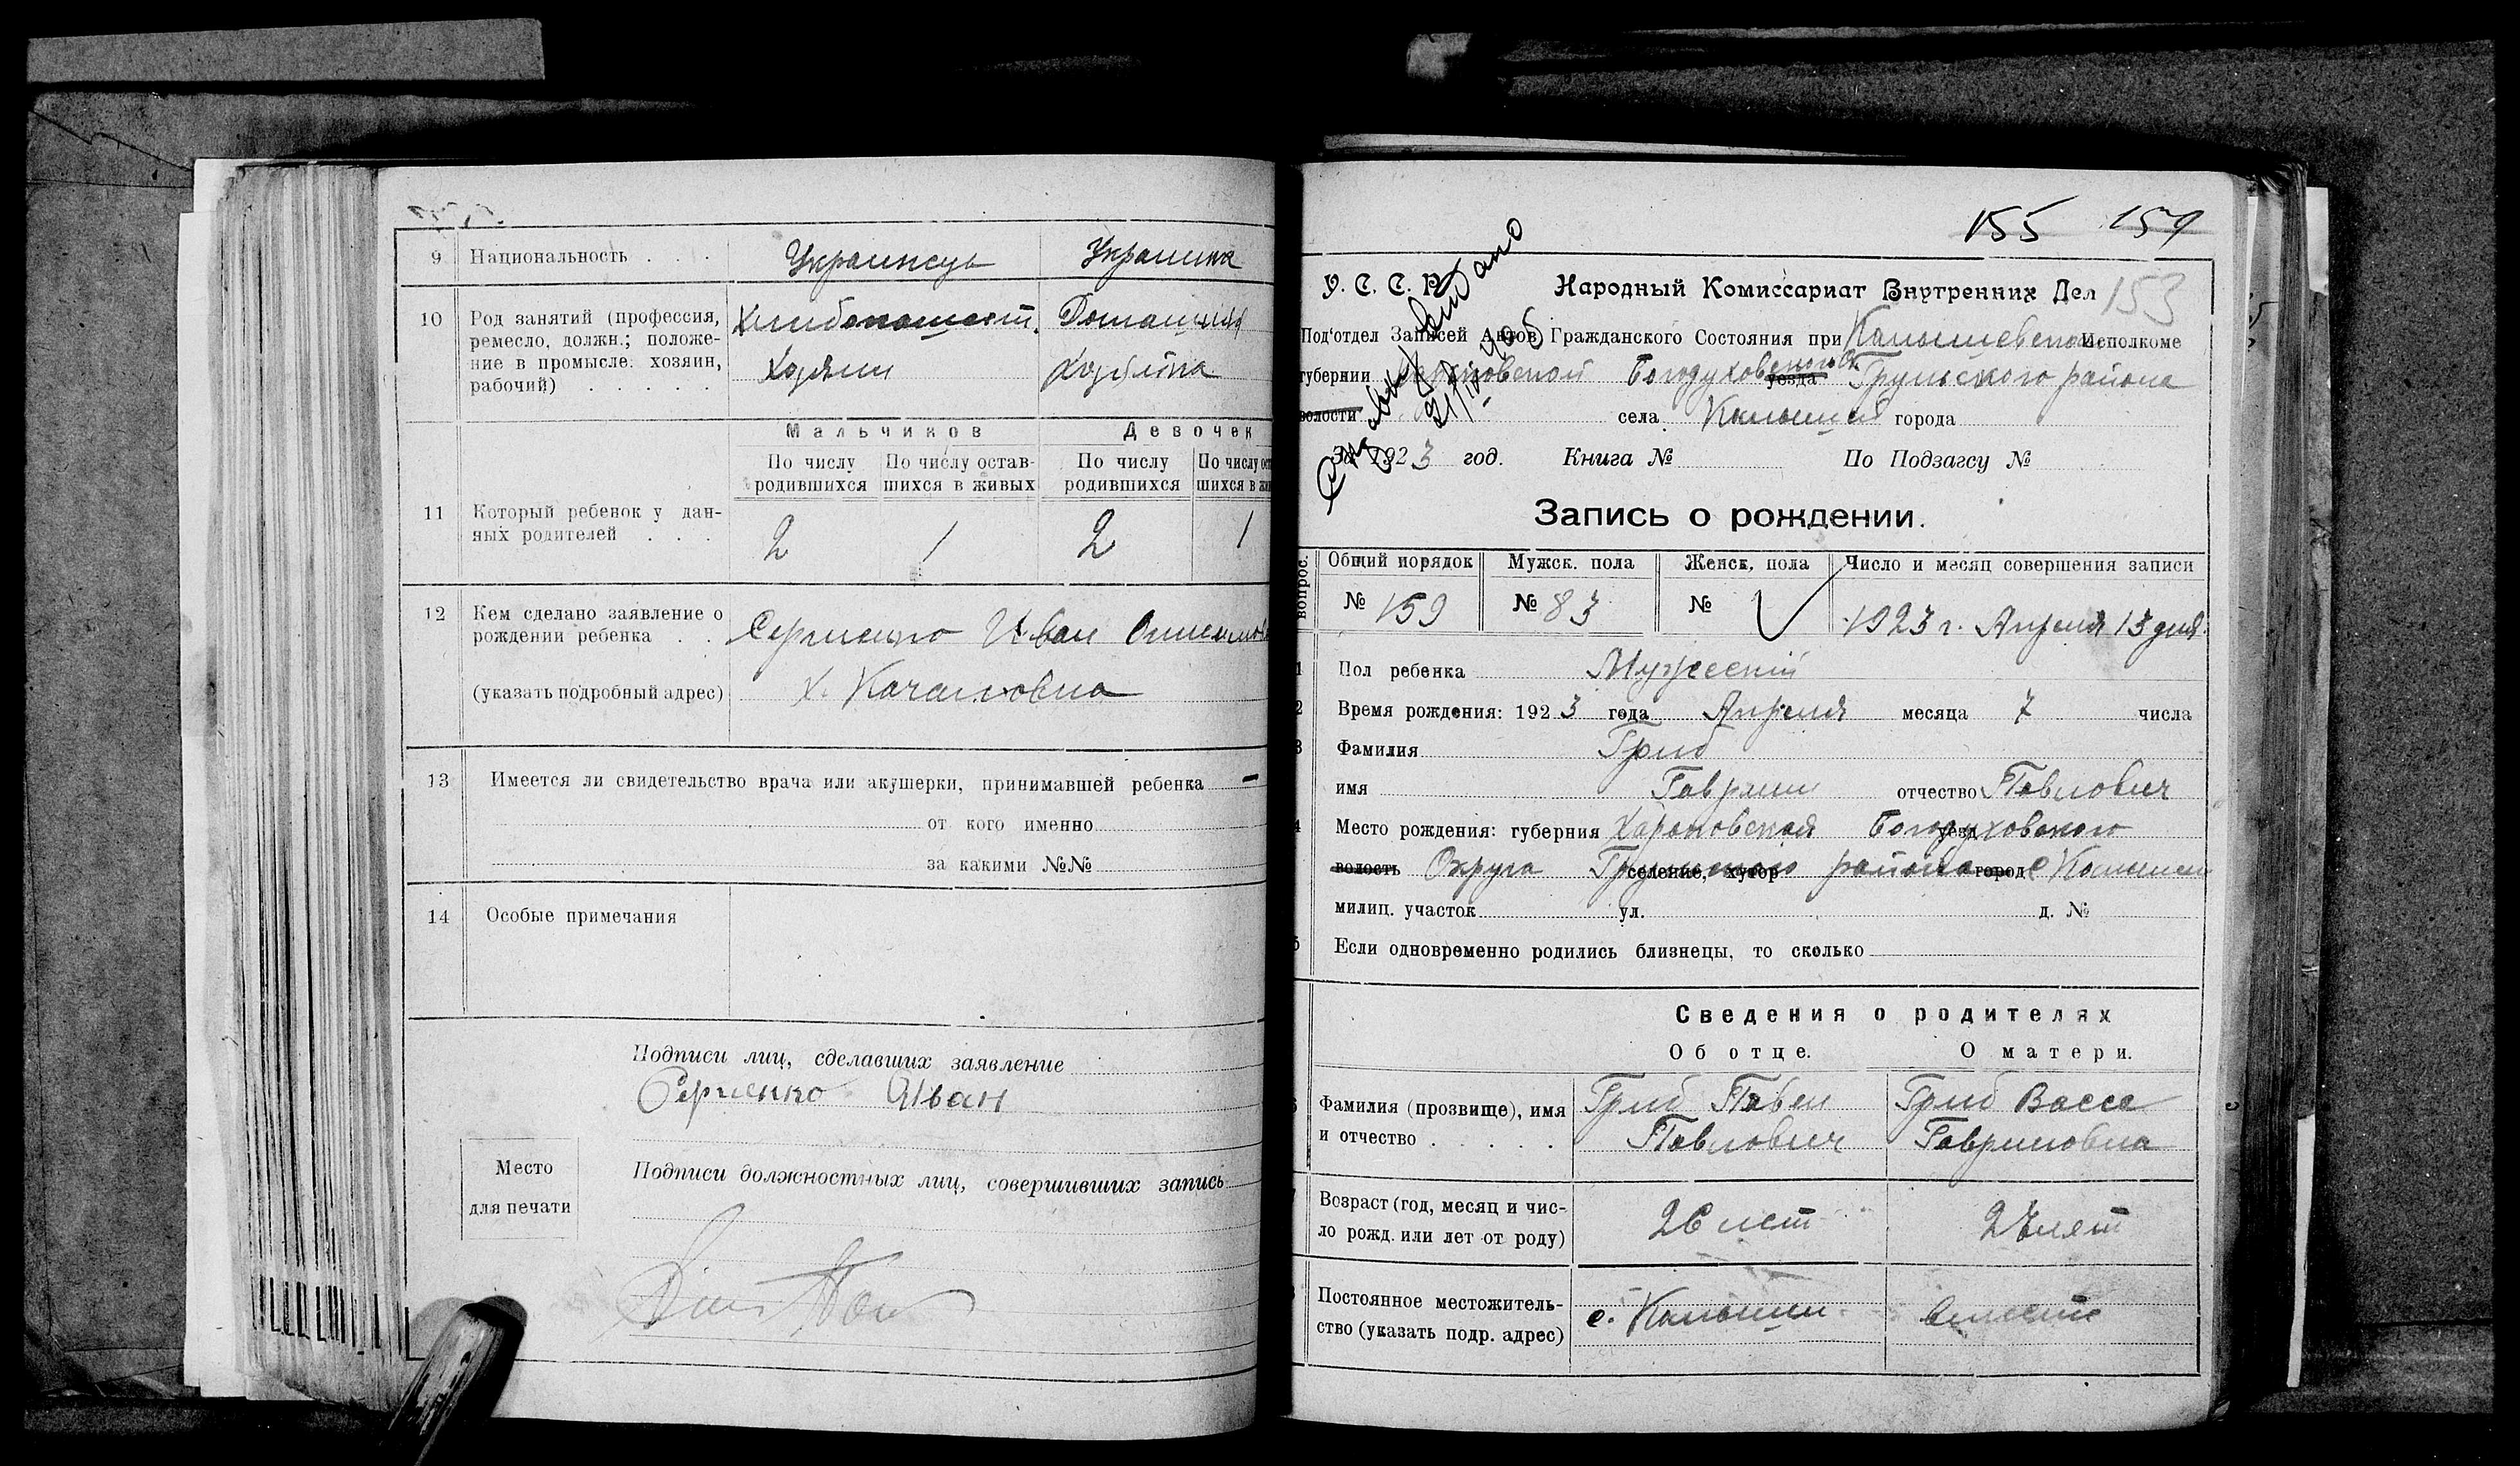 9 Национальность . . . Украинец Украинка
10 Род занятий (профессия, Хлебопашест. Домашняя
ремесло, должн.; положе-
ние в промысле: хозяин, Хозяин Хозяйка
рабочий) . . . . .
Мальчиков Девочек
По числу По числу остав- По числу По числу ост
родившихся шихся в живых родившихся шихся в жи
11 Который ребенок у дан- 2 1 2 1
ных родителей . . .
12 Кем сделано заявление о
рождении ребенка . . Сергиенко Иван
(указать подробный адрес) х. Качаловка
13 Имеется ли свидетельство врача или акушерки, принимавшей ребенка —
от кого именно
за какими №№
14 Особые примечания
Подписи лиц, сделавших заявление
Сергиенко Иван
Место
для печати
Подписи должностных лиц, совершивших запись
155 159
У. С. С. Р. Народный Комиссариат Внутренних Дел 153
Под'отдел Записей Актов Гражданского Состояния при Исполкоме
губернии Харьковской Богодуховского уезда Грунского района
волости села города
За 1923 год. Книга № По Подзагсу №
Запись о рождении.
вопрос. Общий порядок Мужск. пола Женск. пола Число и месяц совершения записи
№ 159 № 83 № 1923 г. Апреля 13 дня.
1 Пол ребенка Мужеский
2 Время рождения: 1923 года Апреля месяца 7 числа
3 Фамилия Гриб
имя Гавриил отчество Павлович
4 Место рождения: губерния Харьковская уезд Богодуховского
волость Округа селение, хутор Грунского района город с
милиц. участок ул. д. №
5 Если одновременно родились близнецы, то сколько
Сведения о родителях
Об отце. О матери.
6 Фамилия (прозвище), имя Гриб Павел Гриб Васса
и отчество . . . . . Павлович Гавриловна
7 Возраст (год, месяц и чис-
ло рожд. или лет от роду) 26 лет 27 лет
8 Постоянное местожитель-
ство (указать подр. адрес) с. вместе